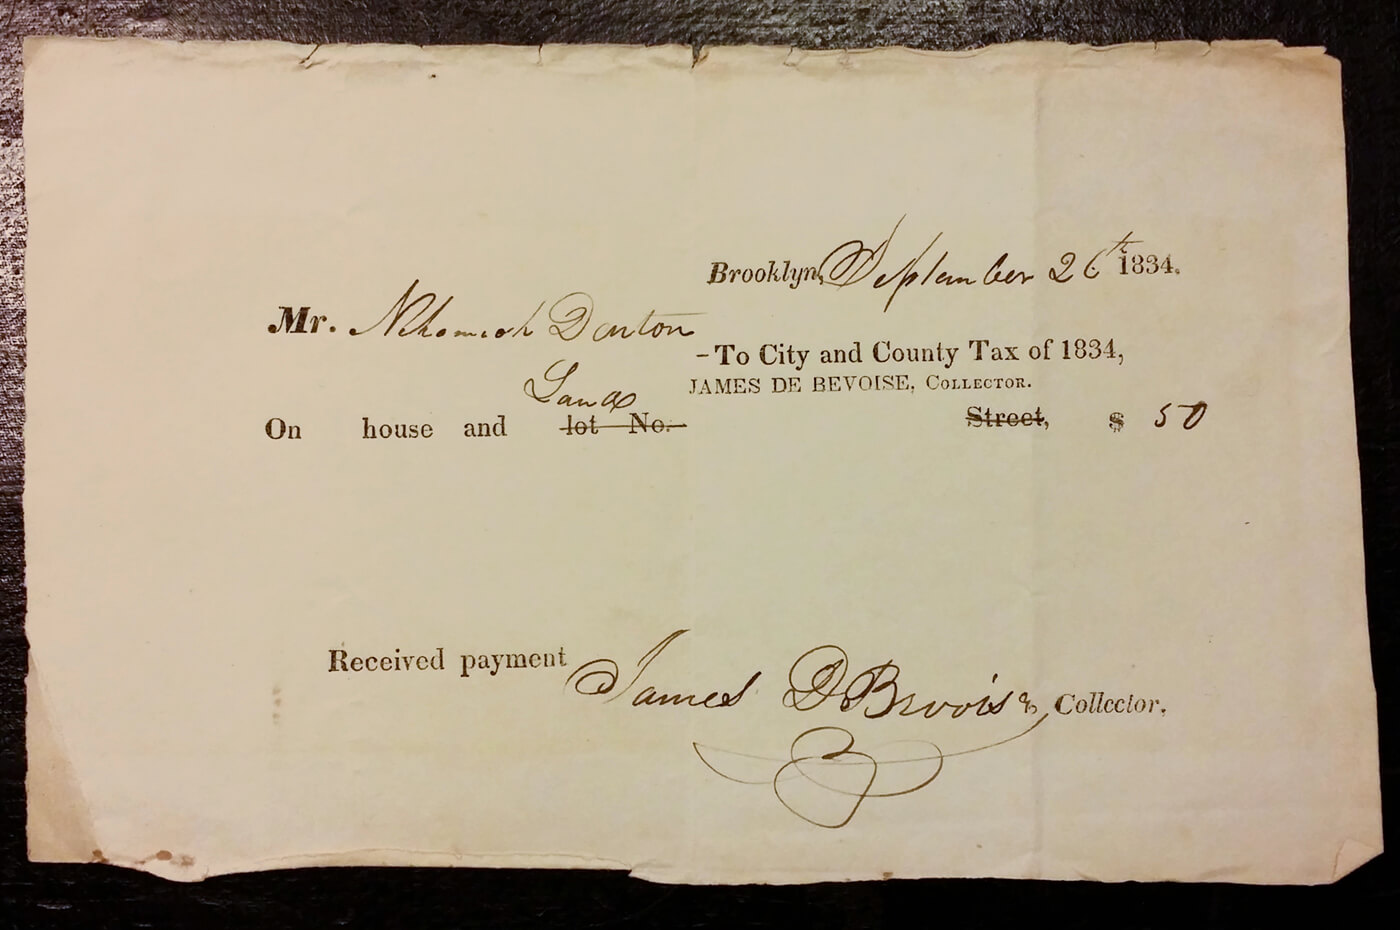 Brooklyn, September 26th 1834.
Mr. Nehemiah Denton
-To City and County Tax of 1834,
JAMES DE BEVOISE, COLLECTOR.
Land
On house and lot No. Street, $ 50
Received payment James D Bevoise Collector.